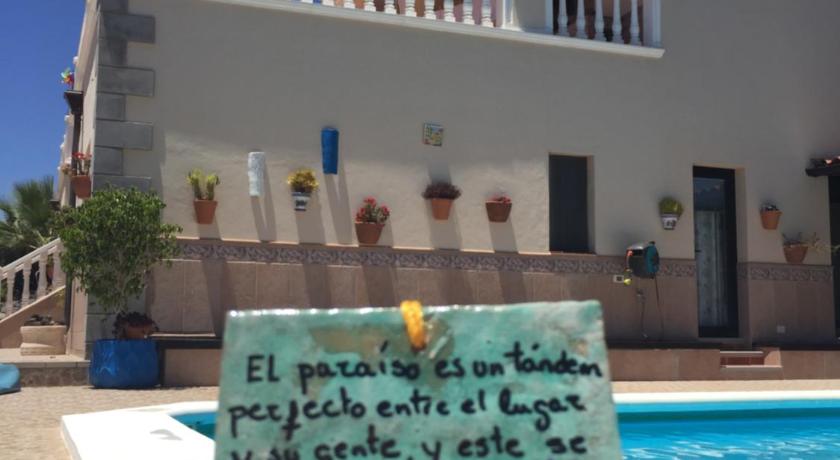 EL paraíso es un tándem
perfecto entre el lugar
y su gente, y este se